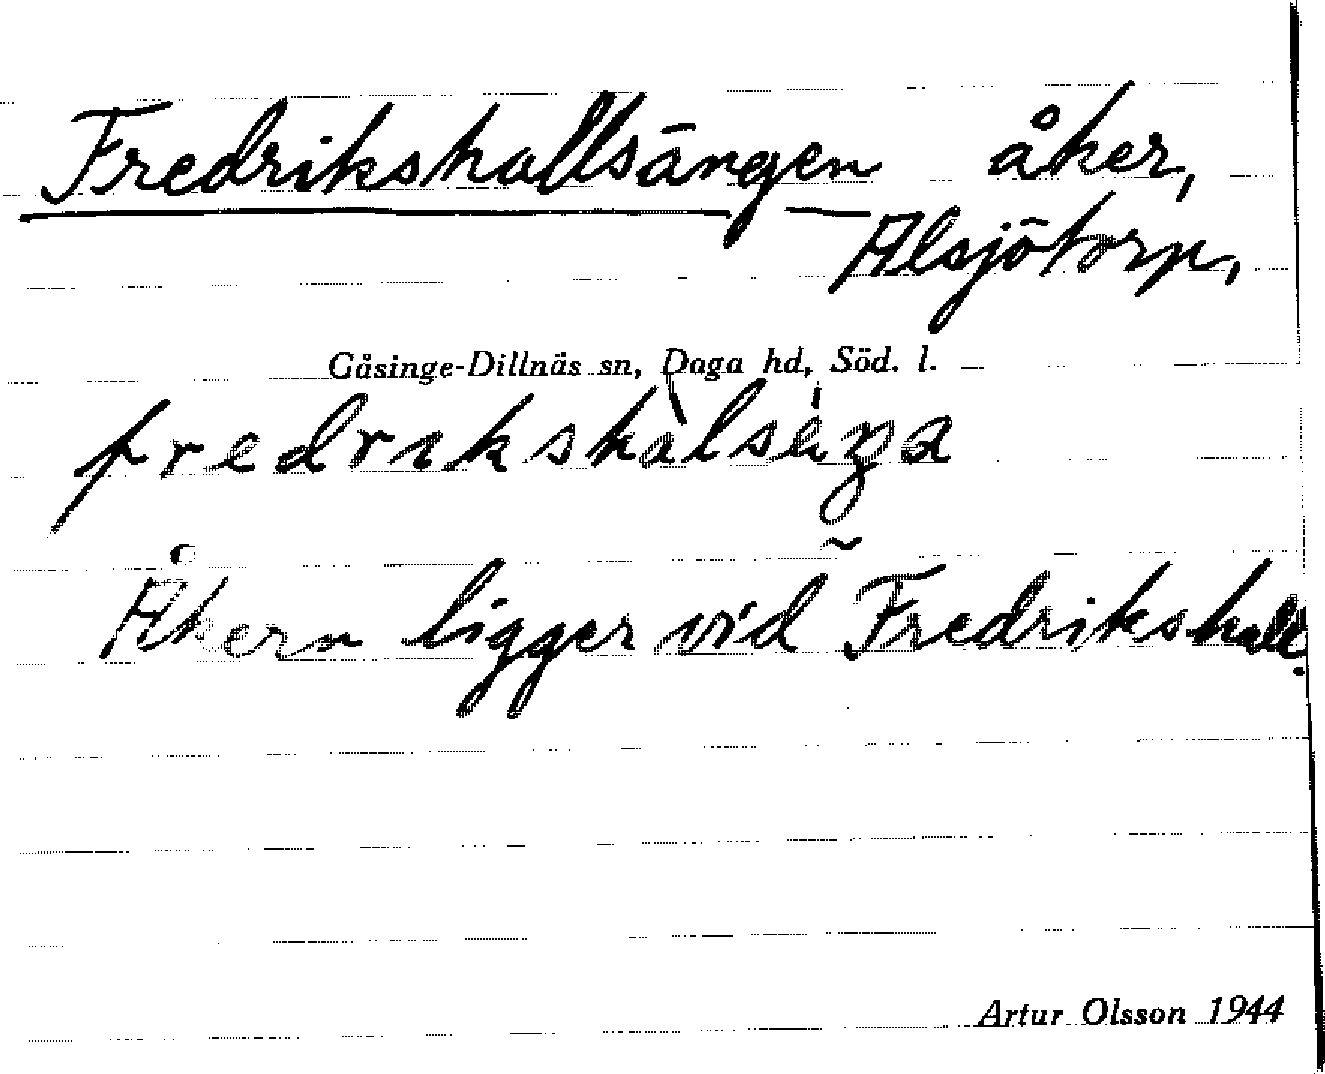 Fredrikshallsängen åker,
Alsjötorp,
Gåsinge-Dillnäs sn, Daga hd, Söd. l.
Åkern ligger vid Fredrikshall.
Artur Olsson 1944